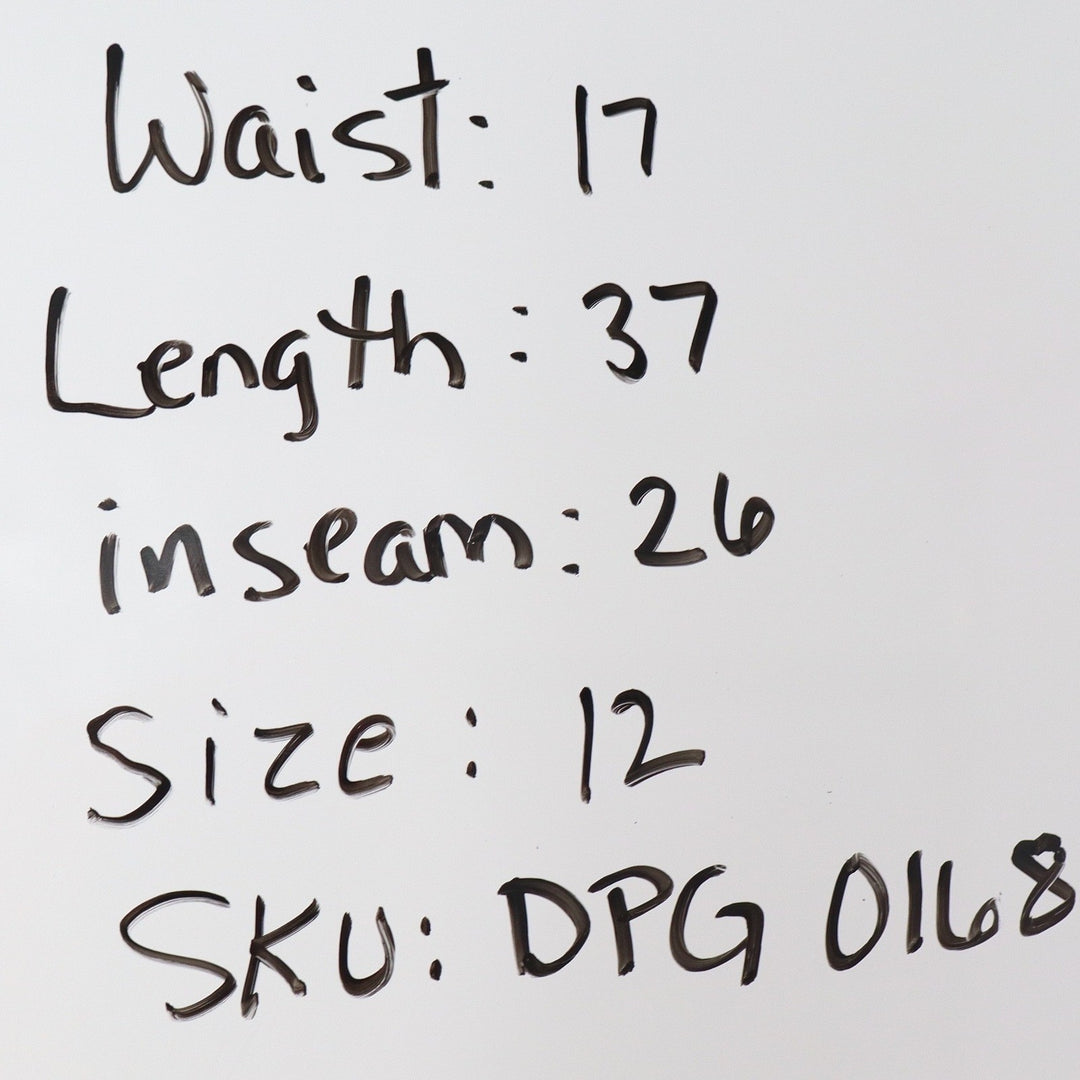 Waist: 17
Length: 37
inseam: 26
Size: 12
SKU: DPG 0168